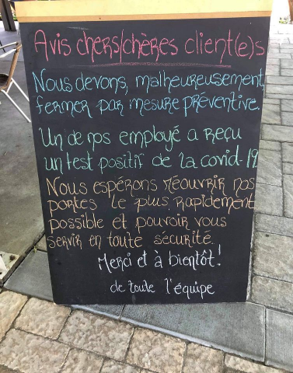 Avis chers/chères client(e)s
Nous devons, malheureusement
fermer par mesure préventive.
Un de nos employé a reçu
un test positif de la covid-19
Nous espérons réouvrir nos
portes le plus rapidement
possible et pouvoir vous
servir en toute sécurité.
Merci et à bientôt!
de toute l'équipe